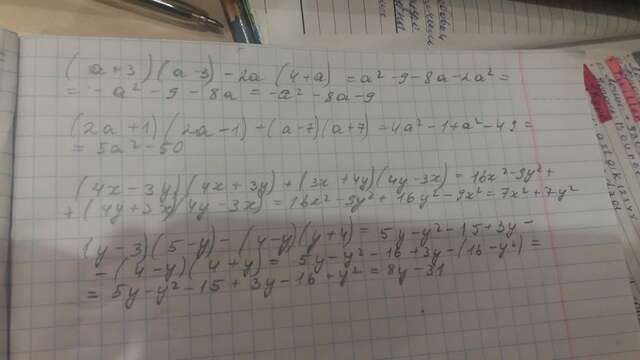 (a+3)(a-3)-2a(4+a)=a²-9-8a-2a²=
=-a²-9-8a=-a²-8a-9
(2a+1)(2a-1)+(a-7)(a+7)=4a²-1+a²-49=
=5a²-50
(4x-3y)(4x+3y)+(3x+4y)(4y-3x)=16x²-9y²+
+(4y+3x)(4y-3x)=16x²-9y²+16y²-9x²=7x²+7y²
(y-3)(5-y)-(4-y)(y+4)=5y-y²-15+3y-
-(4-y)(4+y)=5y-y²-16+3y-(16-y²)=
=5y-y²-15+3y-16+y²=8y-31